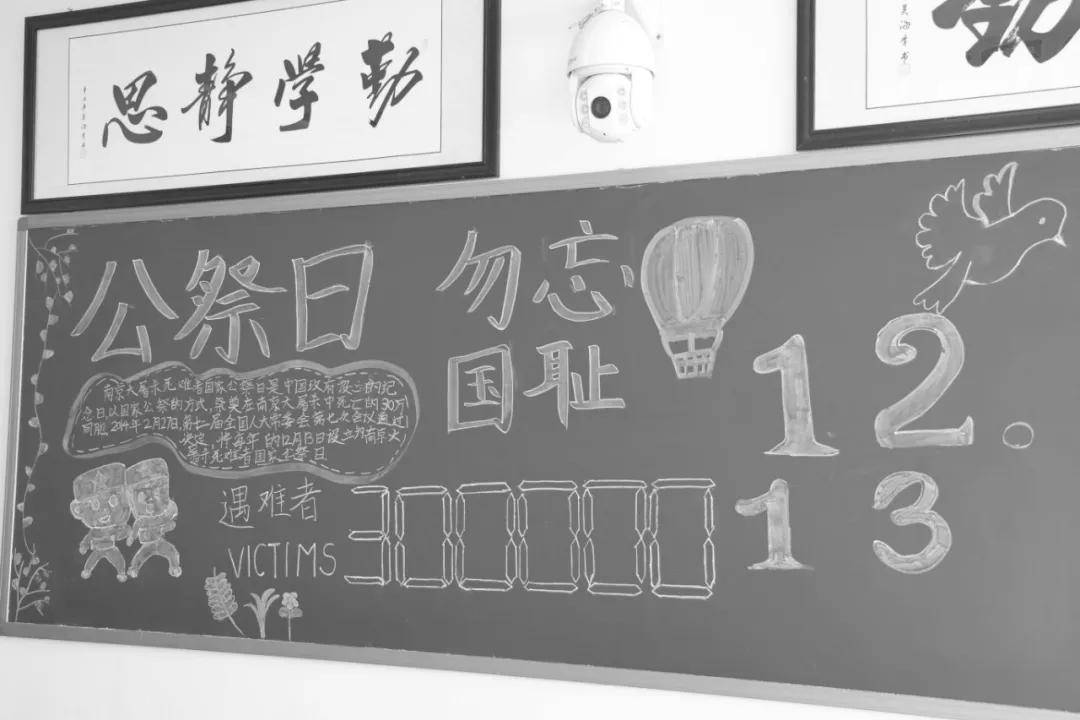 勤学静思
公祭日
勿忘
国耻
南京大屠杀死难者国家公祭日是中国政府设立的纪
念日,以国家公祭的方式,祭奠在南京大屠杀中死亡的30万
同胞.2014年2月27日,第十二届全国人大常委会第七次会议通过
决定,将每年的12月13日设立为南京大
屠杀死难者国家公祭日
遇难者
VICTIMS
300000
12.
13